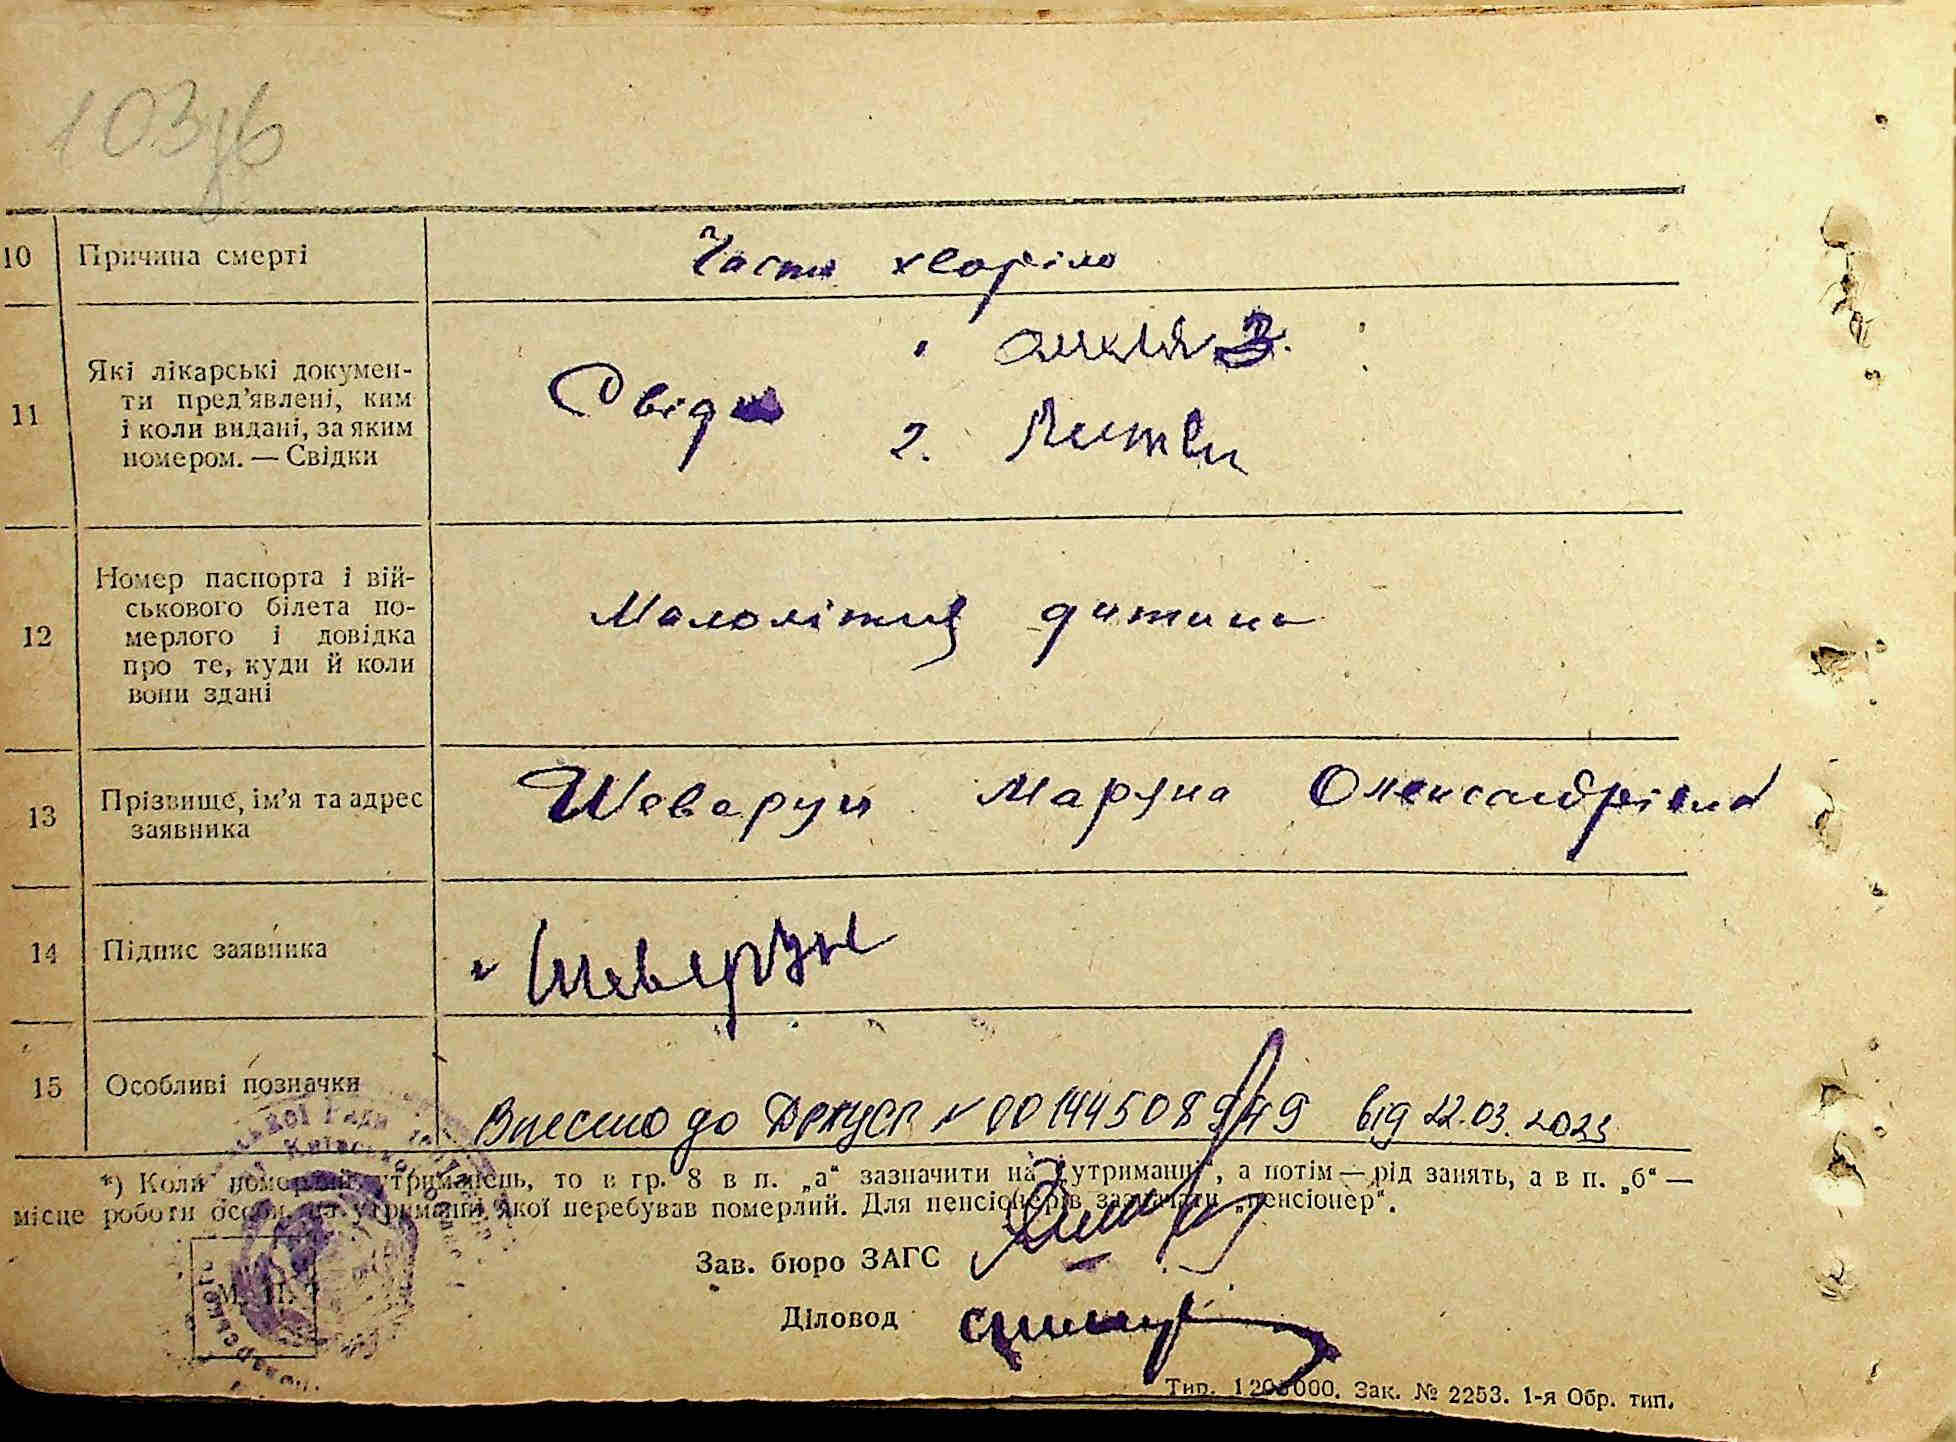 103зв
10 Причина смерті Часто хворіло
11 Які лікарські докумен-
ти пред'явлені, ким
і коли видані, за яким
номером. — Свідки
Свідки
2. Литви
12 Номер паспорта і вій-
ськового білета по-
мерлого і довідка
про те, куди й коли
вони здані
Малолітня дитина
13 Прізвище, ім'я та адрес
заявника
Шеварун Маруна Олександрівна
14 Підпис заявника
15 Особливі позначки
Внесено до ДРАЦСГ № 00144508949 від 22.03.2023
*) Коли померлий утриманець, то в гр. 8 в п. „а“ зазначити на „утриманні“, а потім — рід занять, а в п. „б“ —
місце роботи особи, на утриманні якої перебував померлий. Для пенсіонерів зазначати „пенсіонер“.
М. П.
Зав. бюро ЗАГС
Діловод
Тип. 1205000. Зак. № 2253. 1-я Обр. тип.